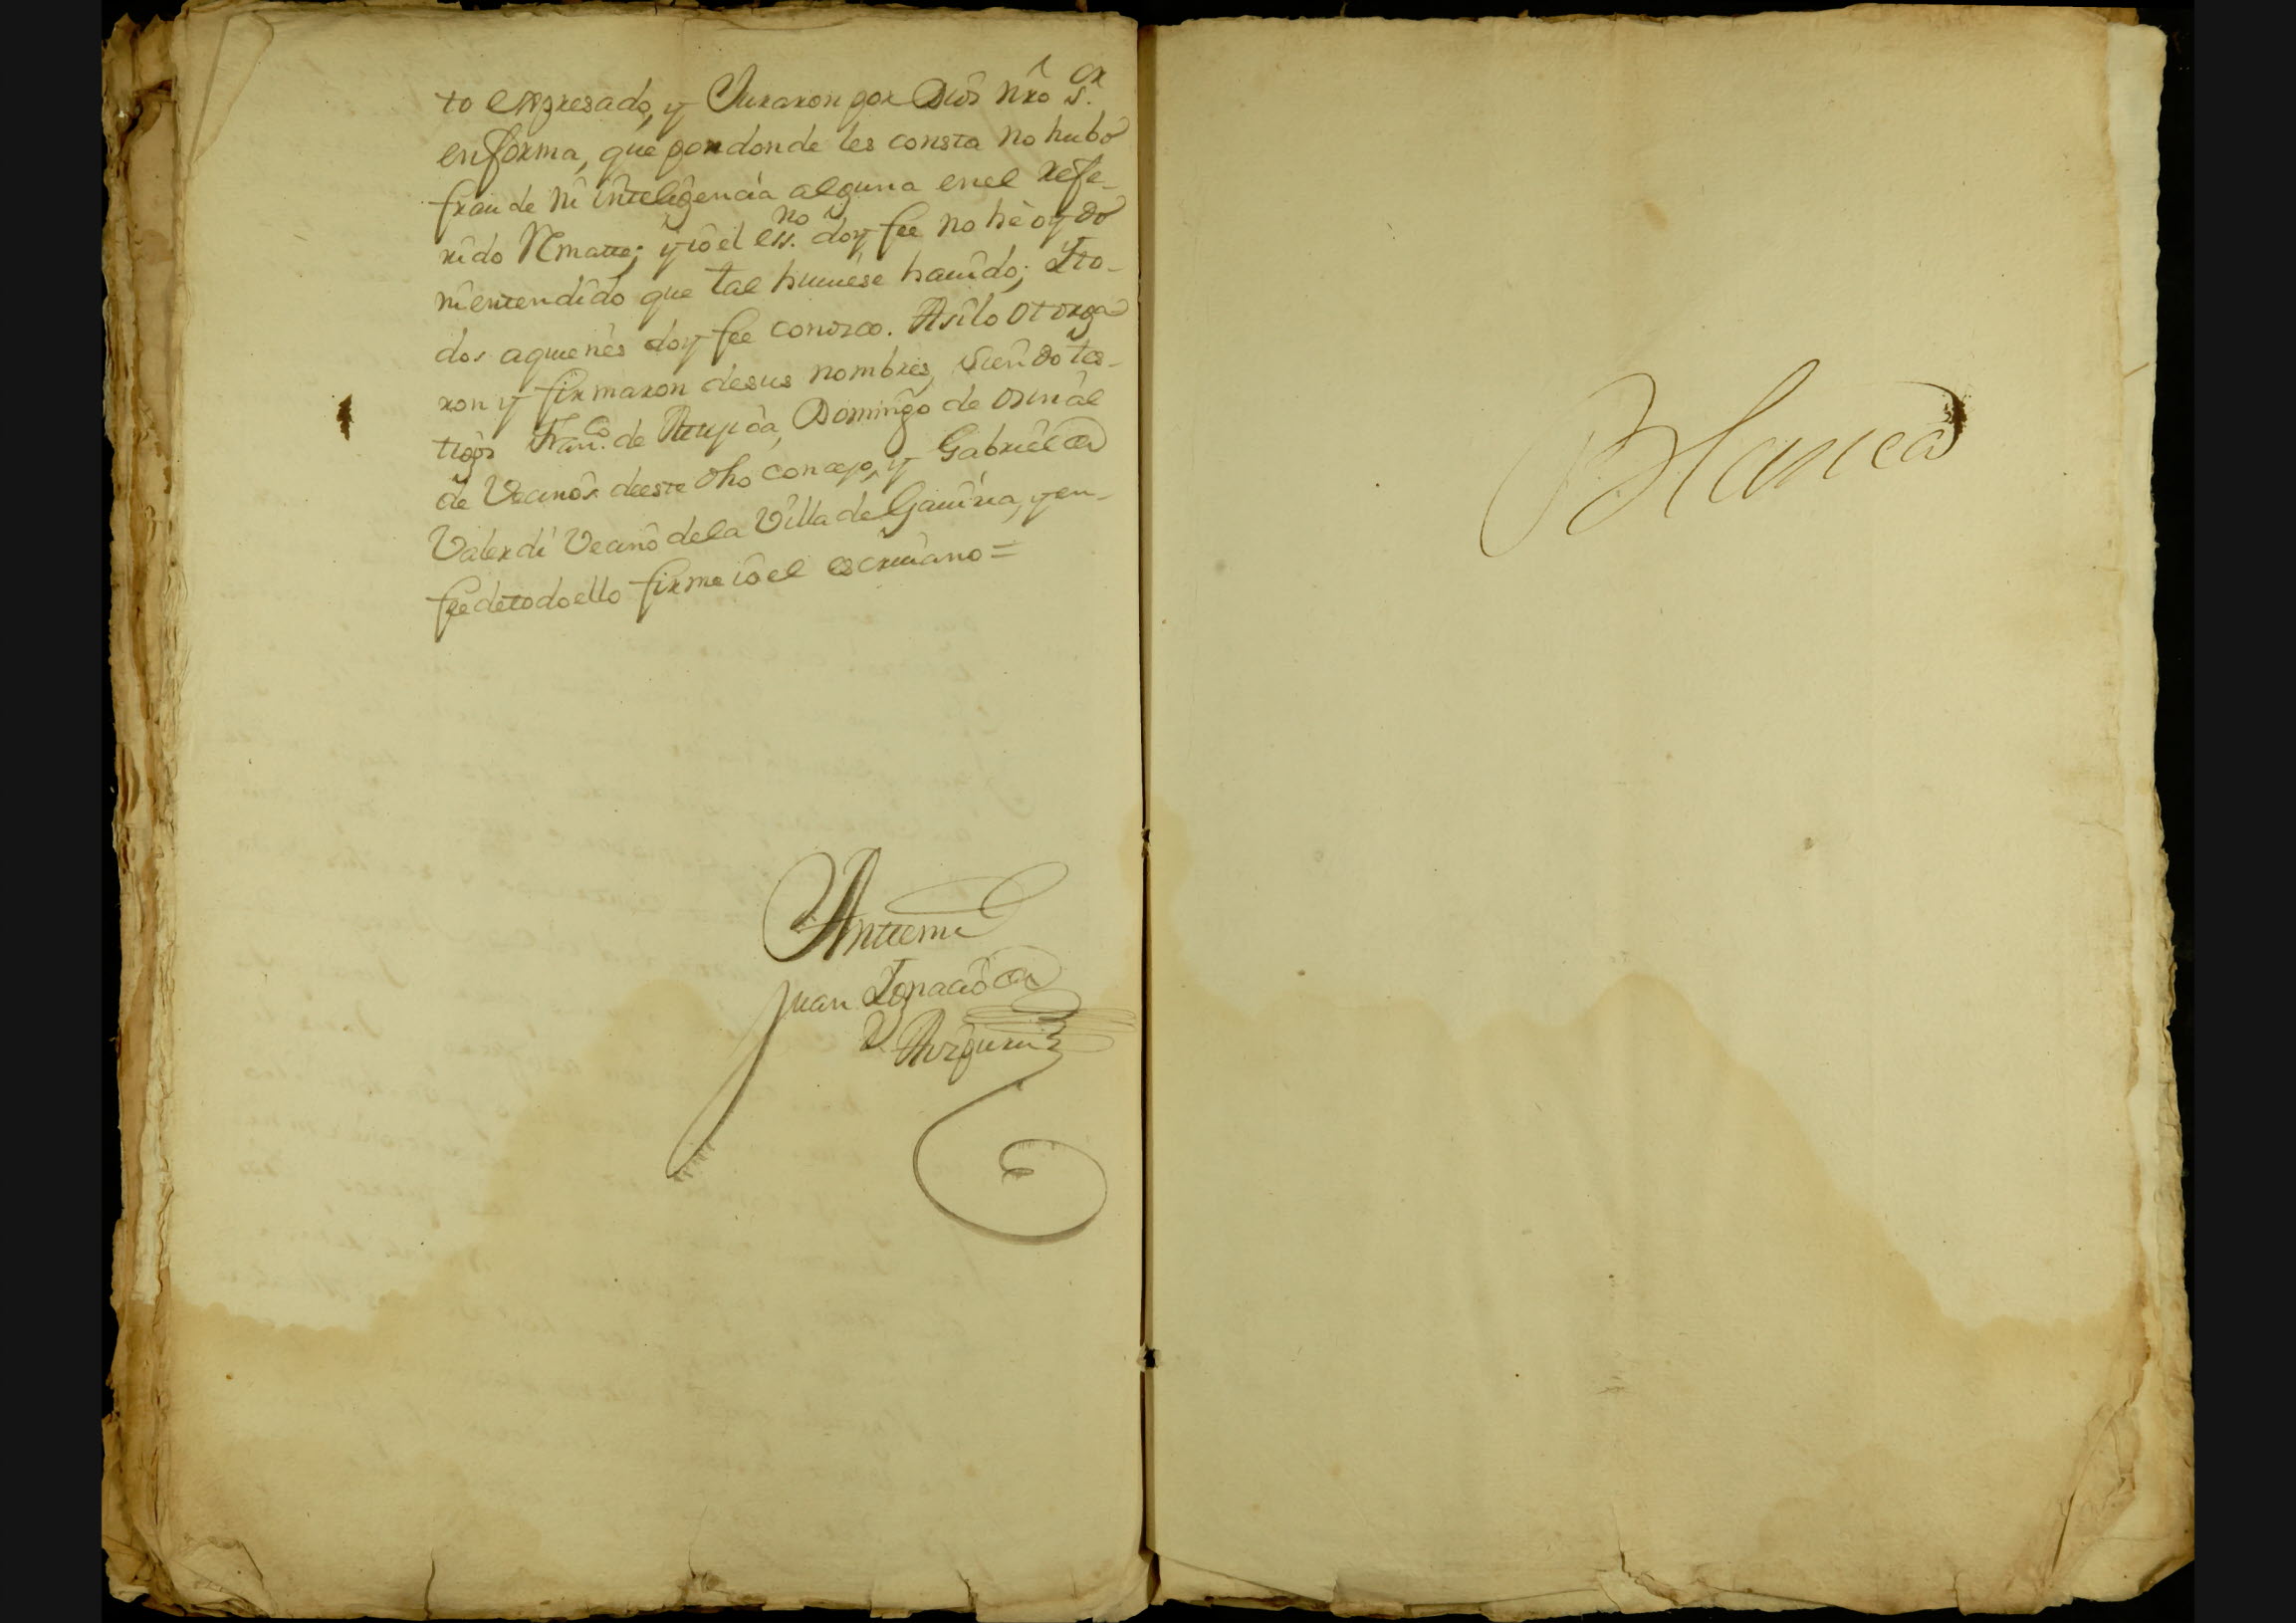 to expresado, y Juraron por Dios nro s.or
en forma, que por donde les consta no hubo
fraude ni inteligencia alguna enel refe-
rido Remate; y io el ess.no doy fee no hè oydo
ni entendido que tal huuiese hauido; Y to-
dos aquienes doy fee conozco. Asilo otorga
ron y firmaron desus nombres, siendo tes-
tigos Fran.co de Domingo de
de Vecinos deeste dho concejo, y Gabriel
Valerdi Vecino dela Villa de Gauiria, y en-
fee detodo ello firme io el escriuano =
Antemi
Juan Ignacio
Blanca